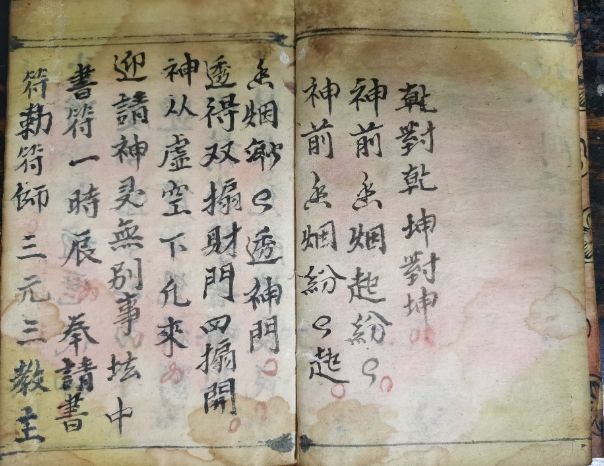 乾對乾坤對坤
神前香烟起紛〻
神前香烟紛〻起
香烟渺〻透神門
透得双搧財門四搧開
神从虚空下凡来
迎請神灵無别事坛中
書符一時辰 奉請書
符勅符師三元三教主